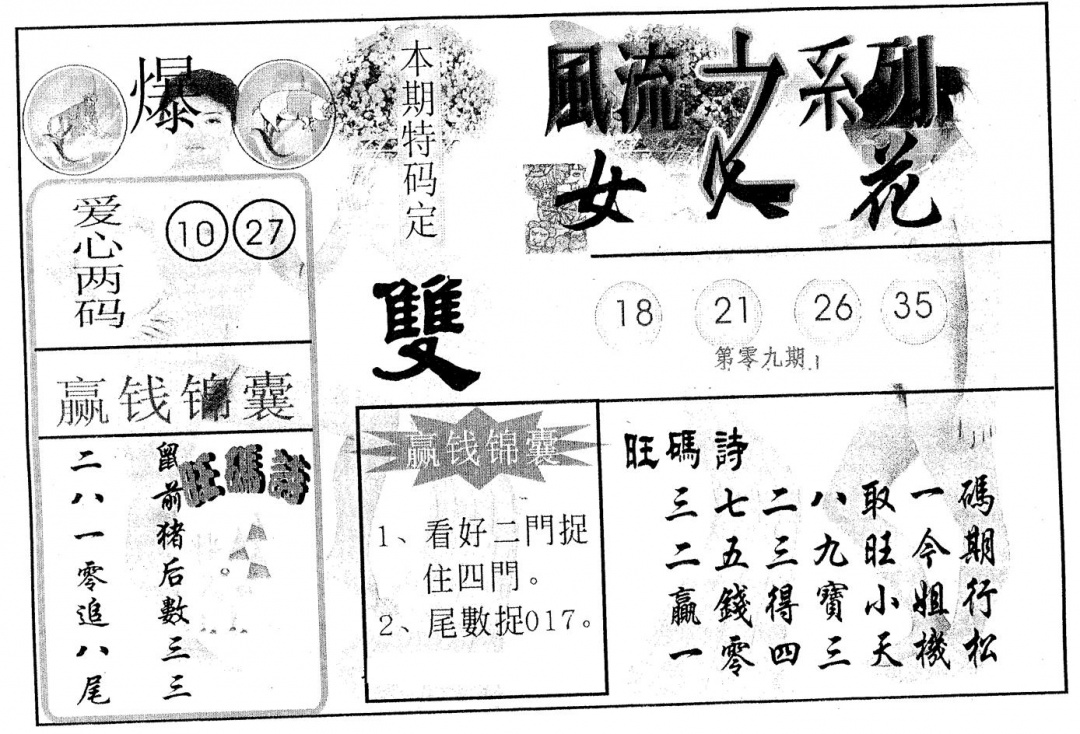 爆
爱心两码
10 27
赢钱锦囊
旺碼詩
鼠前猪后數三三
二八一零追八尾
本期特码定
雙
赢钱锦囊
1、看好二門捉
住四門。
2、尾數捉017。
風流之系列
女花
18 21 26 35
第零九期
旺碼詩
三七二八取一碼
二五三九旺今期
贏錢得寶小姐行
一零四三天機松